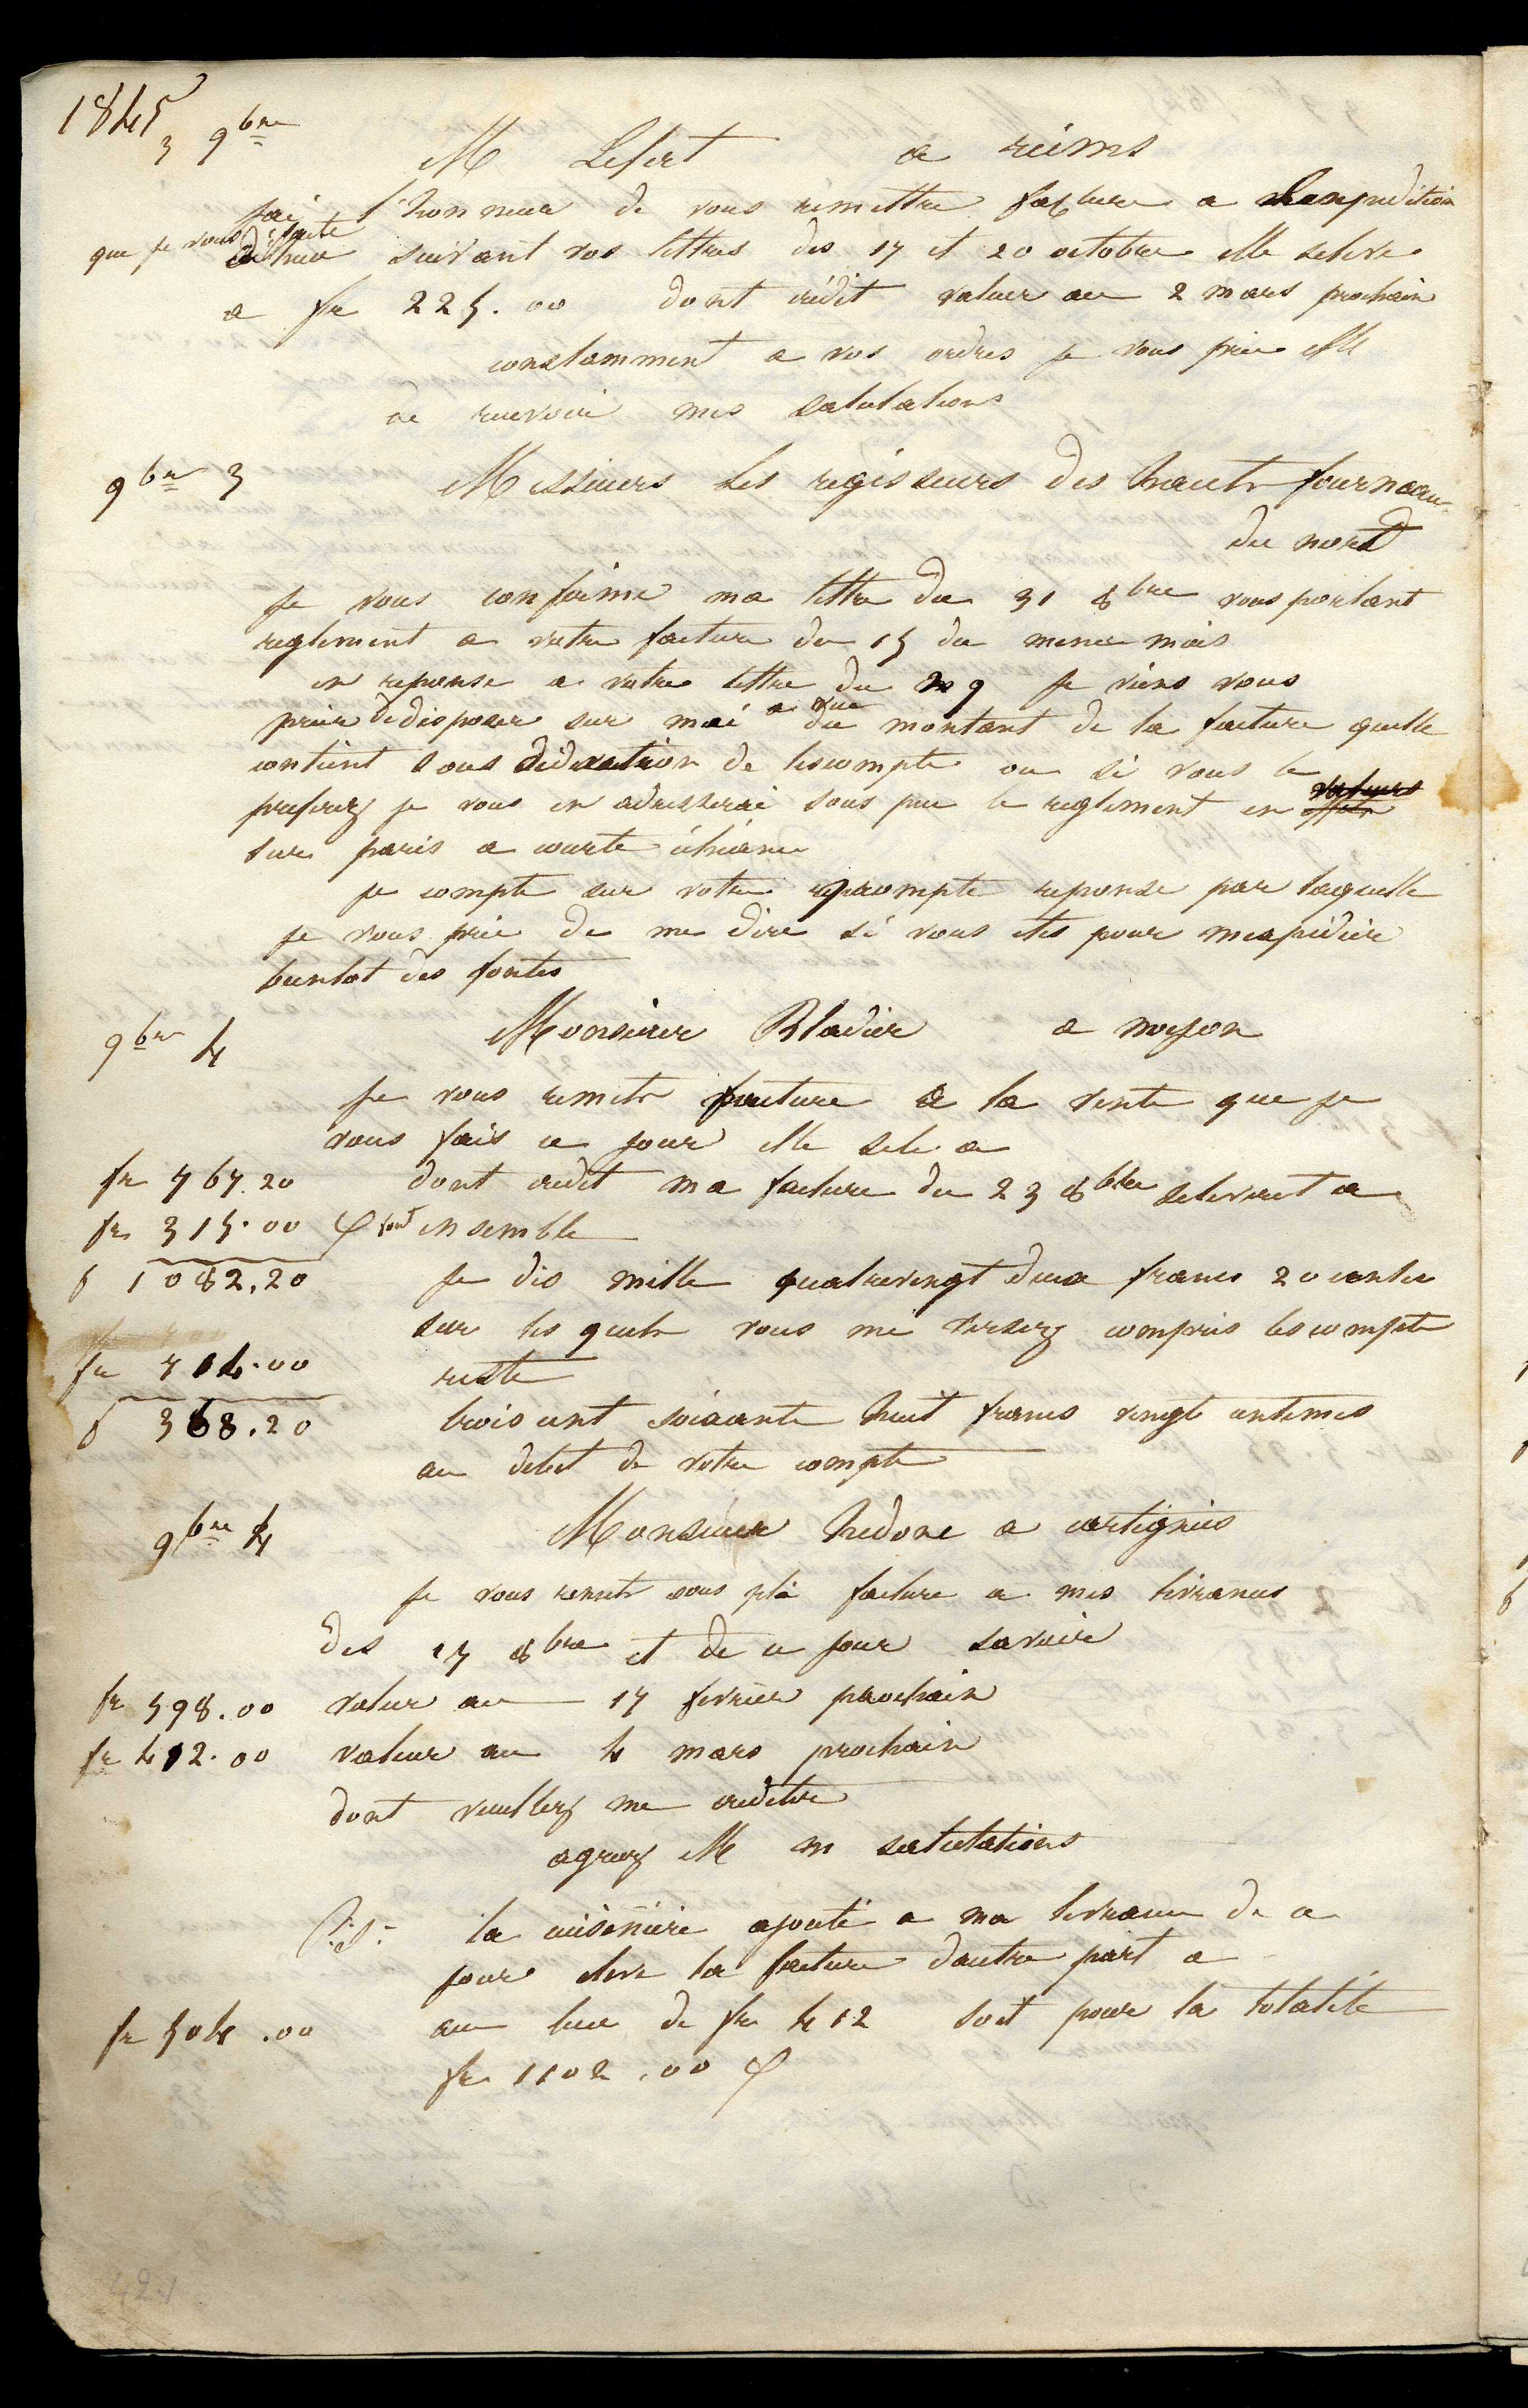 1845
3 9bre
M Lefert a reims
jai l'honneur de vous remettre facture a lexpedition
que je vous ai faite
suivant vos lettres des 17 et 20 octobre elle seleve
a fr 225.00 dont crédit valeur au 2 mars prochain
constamment a vos ordres je vous prie M
de recevoir mes salutations
9bre 3 Messieurs les regisseurs des hauts fourneaux
du nord
je vous confirme ma lettre du 31 8bre vous portant
reglement a votre facture du 15 du meme mois
en reponse a votre lettre du 29 je viens vous
prier de disposer sur moi a vue du montant de la facture quelle
contient sous deduction de lescompte ou si vous le
preferez je vous en adresserai sous peu le reglement en valeurs
sur paris a courte échéance
je compte sur votre prompte reponse par laquelle
je vous prie de me dire si vous etes pour mexpedier
bientot des fontes
9bre 4 Monsieur Bladier a noyon
je vous remets facture a la vente que je
vous fais ce jour elle sele a
fr 767.20 dont credit ma facture du 23 8bre selevant a
fr 315.00 font ensemble
f 1082.20 je dis mille quatrevingt deux francs 20 centes
sur les quels vous me versez compris lescompte
fr 714.00 reste
f 368.20 trois cent soixante huit francs vingt centimes
au debet de votre compte
9bre 4 Monsieur hedore a cartignies
je vous remets sous pli facture a mes livrances
des 17 8bre et de ce jour savoir
fr 598.00 valeur au 17 fevrier prochain
fr 412.00 valeur au 4 mars prochain
dont veuillez me crediter
agreez M m salutations
P.S. la cuisinière ajouté a ma livrance de ce
jour eleve la facture dautre part a
fr 504.00 au lieu de fr 412 soit pour la totalité
fr 1102.00